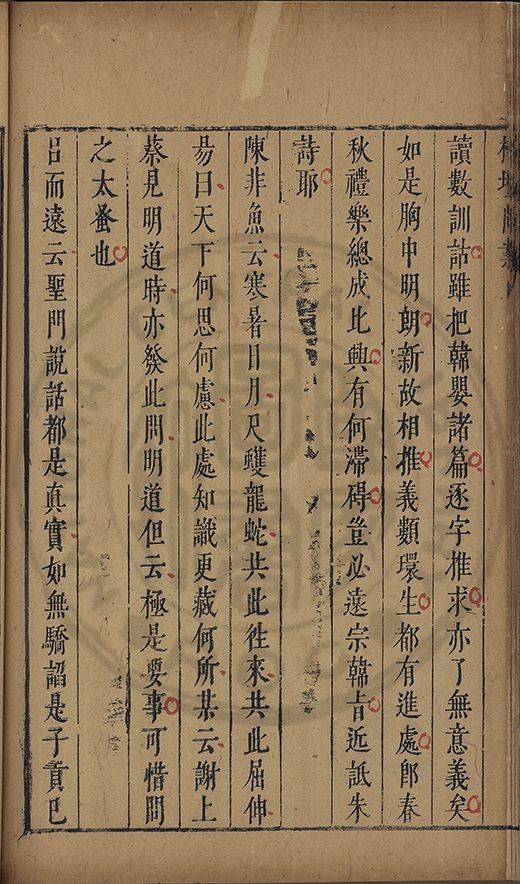 讀數訓詁雖把韓嬰諸篇逐字推求亦了無意義矣
如是胸中明朗新故相推義類環生都有進處郎春
秋禮樂總成比興有何滯碍豈必遠宗韓旨近詆朱
詩耶
陳非魚云寒暑日月尺蠖龍蛇共此徃來共此屈伸
易曰天下何思何慮此處知識更藏何所某云謝上
蔡見明道時亦發此問明道但云極是要事可惜問
之太蚤也
呂而遠云聖門說話都是真實如無驕謟是子貢巳